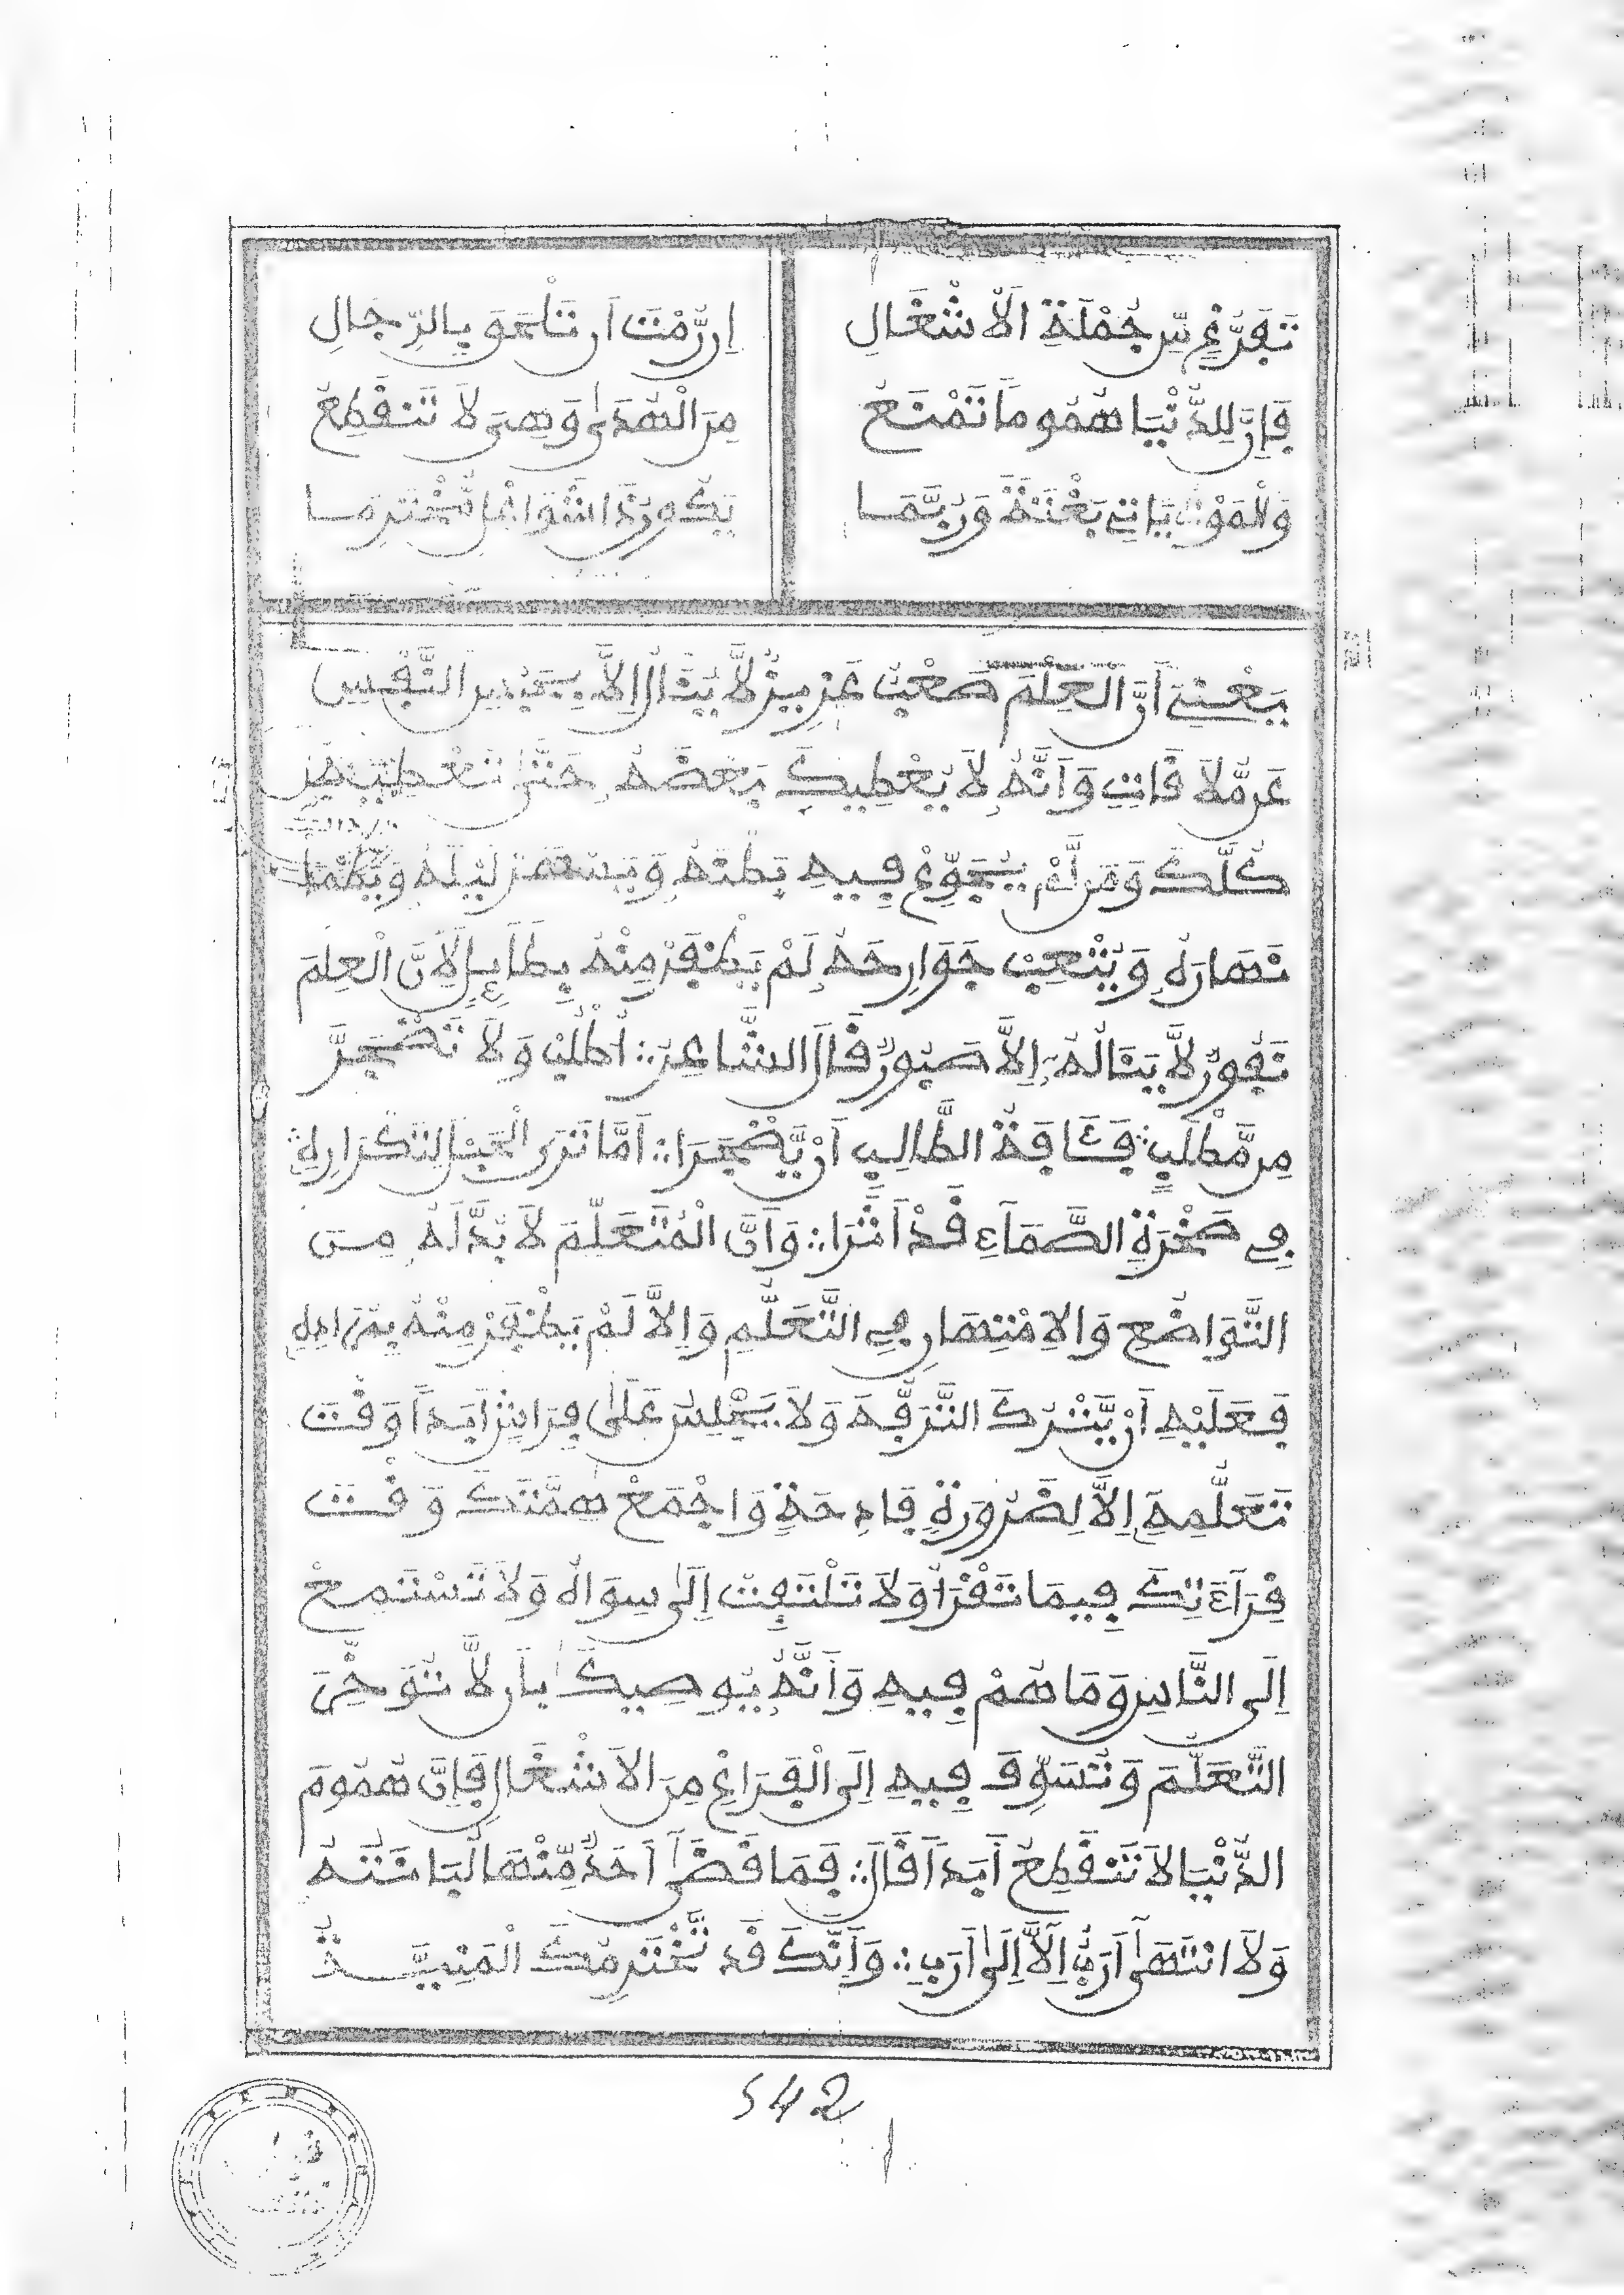 تَفَرُّغٍ مِّن جُمْلَةِ الَاشْغَالِ إِن رُّمْتَ أَن تَلْحَقَ بِالرِّجَالِ
فَإِنَّ لِلدُّنْيَا هُمُومًا تَمْنَعُ مِنَ الْهُدَىٰ وَهِيَ لَا تَنْقَطِعُ
وَالْمَوْتُ يَاتِي بَغْتَةً وَرُبَّمَا يَكُونُ ذَا الشَّوَاغِلِ مُخْتَرِمَا
يَعْنِي أَنَّ الْعِلْمَ صَعْبٌ عَزِيزٌ لَّا يُنَالُ إِلَّا بِتَجْرِيدِ النَّفْسِ
عَن مَّلَاقَاتٍ وَأَنَّهُ لَا يُعْطِيكَ بَعْضَهُ حَتَّىٰ تُعْطِيَهُ
كُلَّكَ وَمَن لَّمْ يُجَوِّعْ فِيهِ بَطْنَهُ وَيَسْهَرْ لَيْلَهُ وَيَظْمَا
نَهَارَهُ وَيُتْعِبْ جَوَارِحَهُ لَمْ يَظْفَرْ مِنْهُ بِطَائِلٍ لِأَنَّ الْعِلْمَ
نَفُورٌ لَّا يَنَالُهُ إِلَّا صَبُورٌ قَالَ الشَّاعِرُ ∴ اُطْلُبْ وَلَا تَضْجَرَّ
مِن مَّطْلَبٍ ∴ فَئَافَةُ الطَّالِبِ أَنْ يَّضْجَرَا ∴ أَمَا تَرَى الْحَبْلَ لِتَكْرَارِهِ ∴
فِي صَخْرَةِ الصَّمَّاءِ قَدْ أَثَّرَا ∴ وَأَنَّ الْمُتَعَلِّمَ لَا بُدَّ لَهُ مِنَ
التَّوَاضُعِ وَالِامْتِهَانِ فِي التَّعَلُّمِ وَإِلَّا لَمْ يَظْفَرْ مِنْهُ بِمُرَادِهِ
فَعَلَيْهِ أَنْ يَّتْرُكَ التَّرَفُّهَ وَلَا يَجْلِسَ عَلَىٰ فِرَاشٍ أَبَداً وَقْتَ
تَعَلُّمِهِ إِلَّا لِضَرُورَةٍ فَادِحَةٍ وَاجْمَعْ هِمَّتَكَ وَقْتَ
قِرَاءَتِكَ فِيمَا تَقْرَأُ وَلَا تَلْتَفِتْ إِلَىٰ سِوَاهُ وَلَا تَسْتَمِعْ
إِلَى النَّاسِ وَمَا هُمْ فِيهِ وَأَنَّهُ يُوصِيكَ بِأَن لَّا تُؤَخِّرَ
التَّعَلُّمَ وَتُسَوِّفَ فِيهِ إِلَى الْفَرَاغِ مِنَ الَاشْغَالِ فَإِنَّ هُمُومَ
الدُّنْيَا لَا تَنْقَطِعُ أَبَداً قَالَ ∴ فَمَا قَضَىٰ أَحَدٌ مِّنْهَا لُبَانَتَهُ
وَلَا انْتَهَىٰ أَرَبٌ إِلَّا إِلَىٰ أَرَبِ ∴ وَأَنَّكَ قَد تَّخْتَرِمُكَ الْمَنِيَّةُ
542